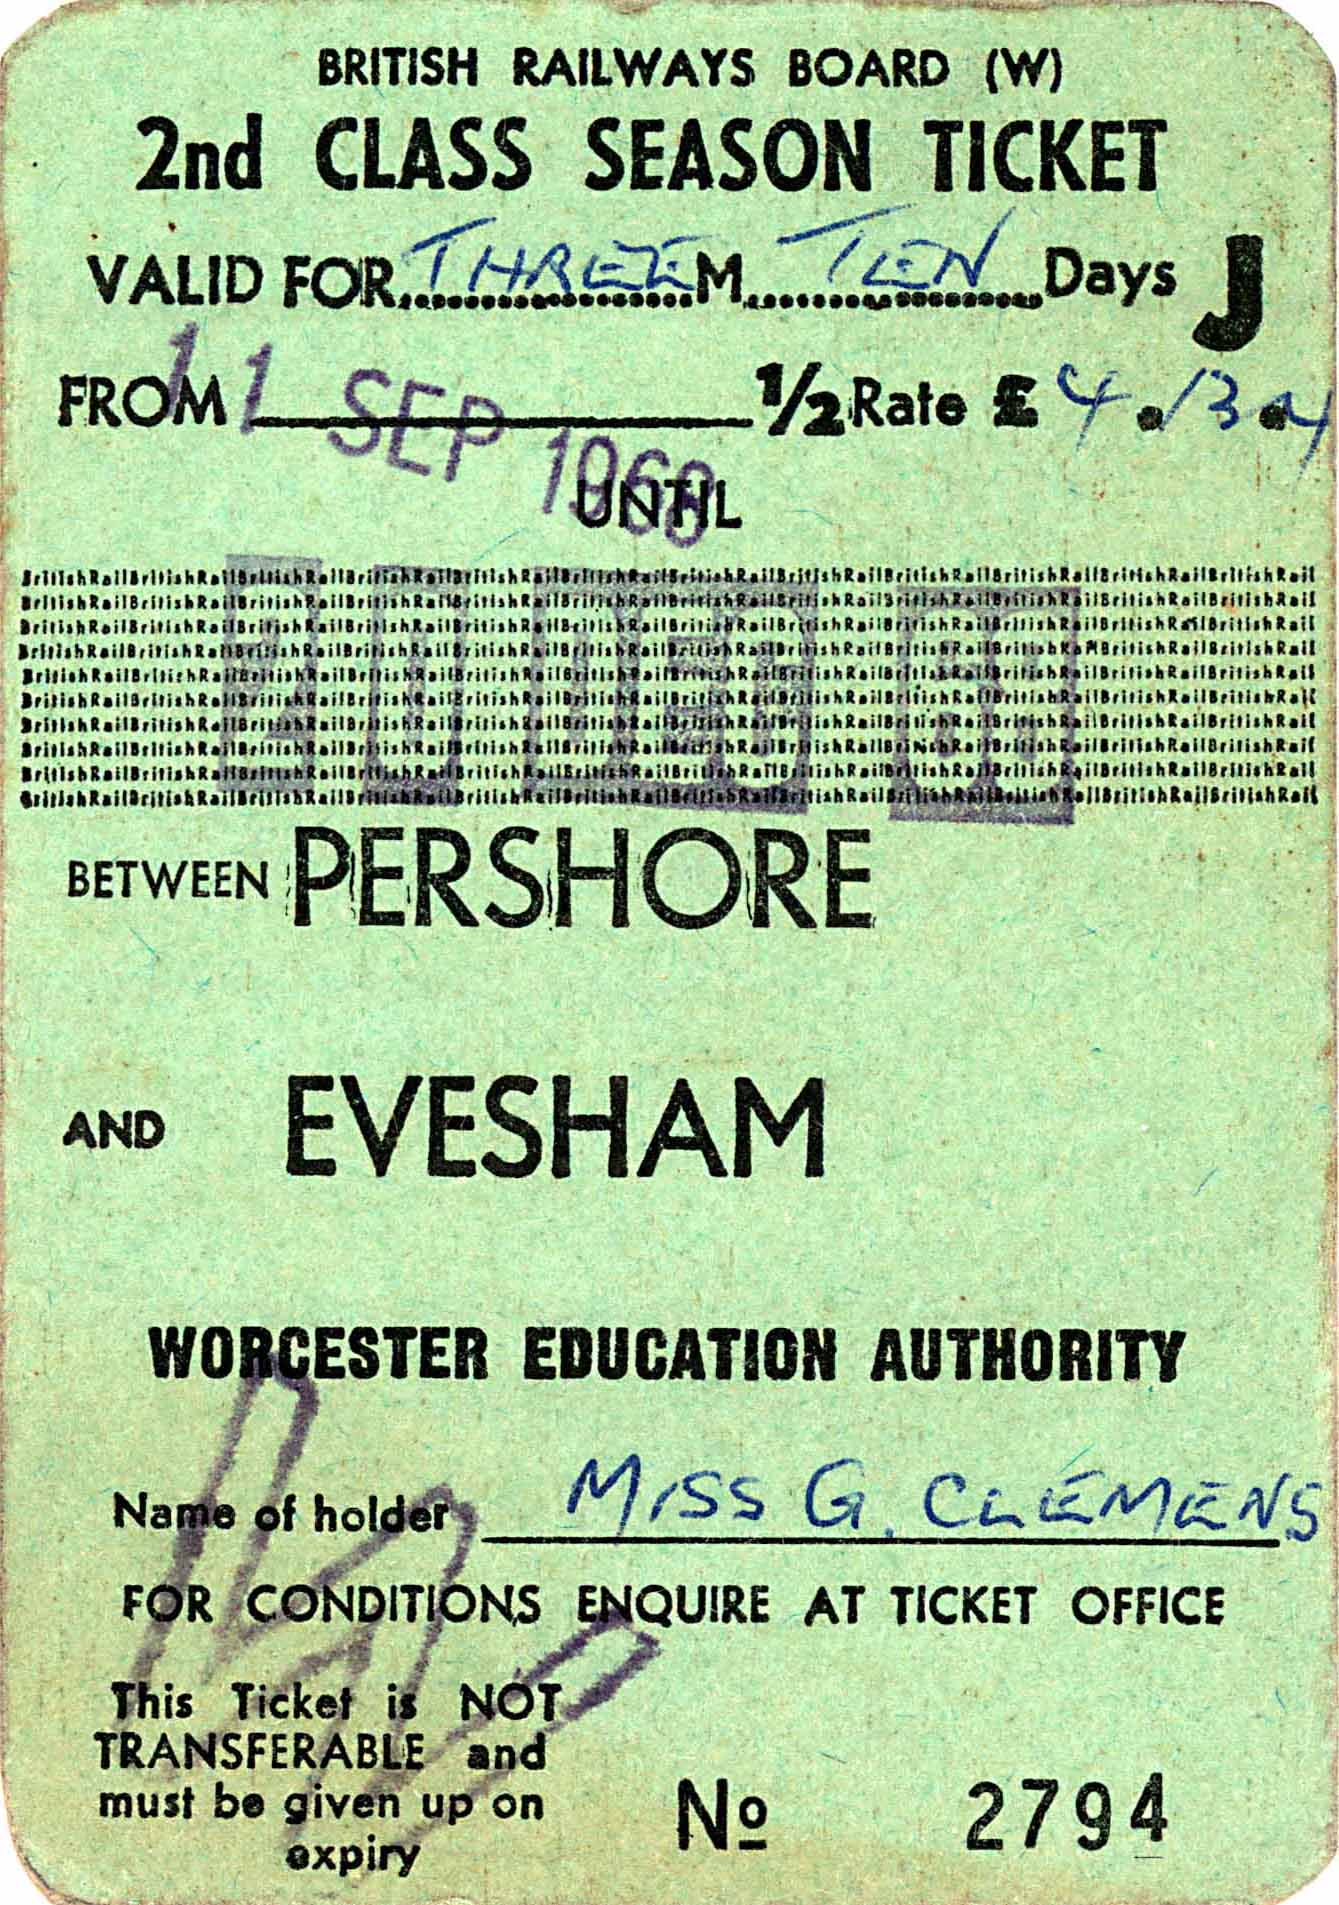 BRITISH RAILWAYS BOARD (W)
2nd CLASS SEASON TICKET
VALID FOR THREE M. TEN Days J
FROM 11 SEP 1968 1/2 Rate £ 4.13.4
UNTIL
BritishRailBritishRailBritishRailBritishRailBritishRailBritishRailBritishRailBritishRailBritishRailBritishRailBritishRail
BritishRailBritishRailBritishRailBritishRailBritishRailBritishRailBritishRailBritishRailBritishRailBritishRailBritishRail
BritishRailBritishRailBritishRailBritishRailBritishRailBritishRailBritishRailBritishRailBritishRailBritishRailBritishRail
BritishRailBritishRailBritishRailBritishRailBritishRailBritishRailBritishRailBritishRailBritishRailBritishRailBritishRail
BritishRailBritishRailBritishRailBritishRailBritishRailBritishRailBritishRailBritishRailBritishRailBritishRailBritishRail
BritishRailBritishRailBritishRailBritishRailBritishRailBritishRailBritishRailBritishRailBritishRailBritishRailBritishRail
BritishRailBritishRailBritishRailBritishRailBritishRailBritishRailBritishRailBritishRailBritishRailBritishRailBritishRail
BritishRailBritishRailBritishRailBritishRailBritishRailBritishRailBritishRailBritishRailBritishRailBritishRailBritishRail
BritishRailBritishRailBritishRailBritishRailBritishRailBritishRailBritishRailBritishRailBritishRailBritishRailBritishRail
BritishRailBritishRailBritishRailBritishRailBritishRailBritishRailBritishRailBritishRailBritishRailBritishRailBritishRail
BETWEEN PERSHORE
AND EVESHAM
WORCESTER EDUCATION AUTHORITY
Name of holder MISS G. CLEMENS
FOR CONDITIONS ENQUIRE AT TICKET OFFICE
This Ticket is NOT
TRANSFERABLE and
must be given up on
expiry
No 2794